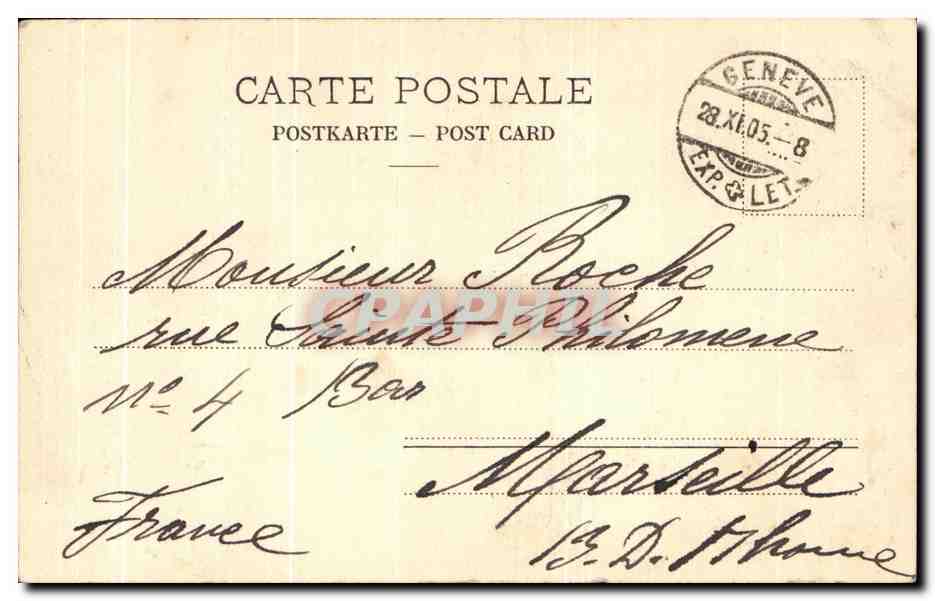 CARTE POSTALE
POSTKARTE – POST CARD
GENÈVE
28.XI.05.–8
EXP. LET.
Monsieur Roche
rue Sainte Philomene
No 4 Bar
Marseille
France
B. D. Rhone
CPAPHIL